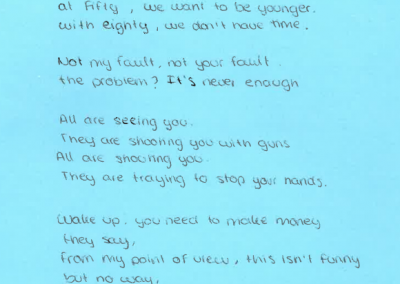 at Fifty, we want to be younger.
with eighty, we don't have time.
Not my fault, not your fault.
the problem? It's never enough
All are seeing you.
They are shooting you with guns
All are shooting you.
They are traying to stop your hands.
Wake up. you need to make money
they say,
from my point of view, this isn't funny
but no way,